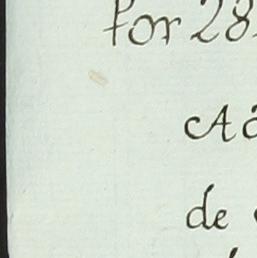 Por 28
Aa
de